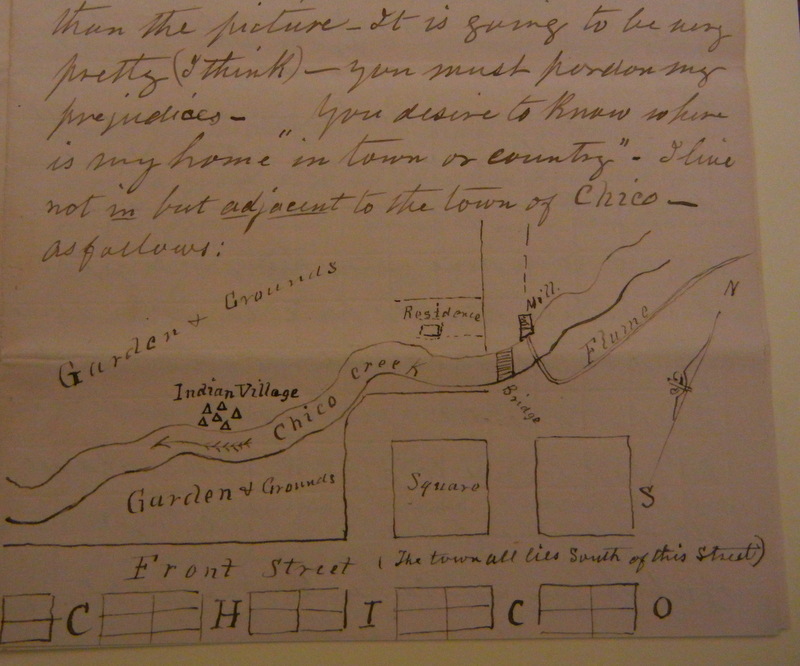 than the picture – It is going to be very
pretty (I think) – you must pardon my
prejudices – You desire to know where
is my home "in town or country" – I live
not in but adjacent to the town of Chico –
as follows:
Garden & Grounds
Residence
Mill.
N
Flume
Indian Village
Chico Creek
Bridge
Garden & Grounds
Square
S
Front Street (The town all lies South of this Street)
C H I C O